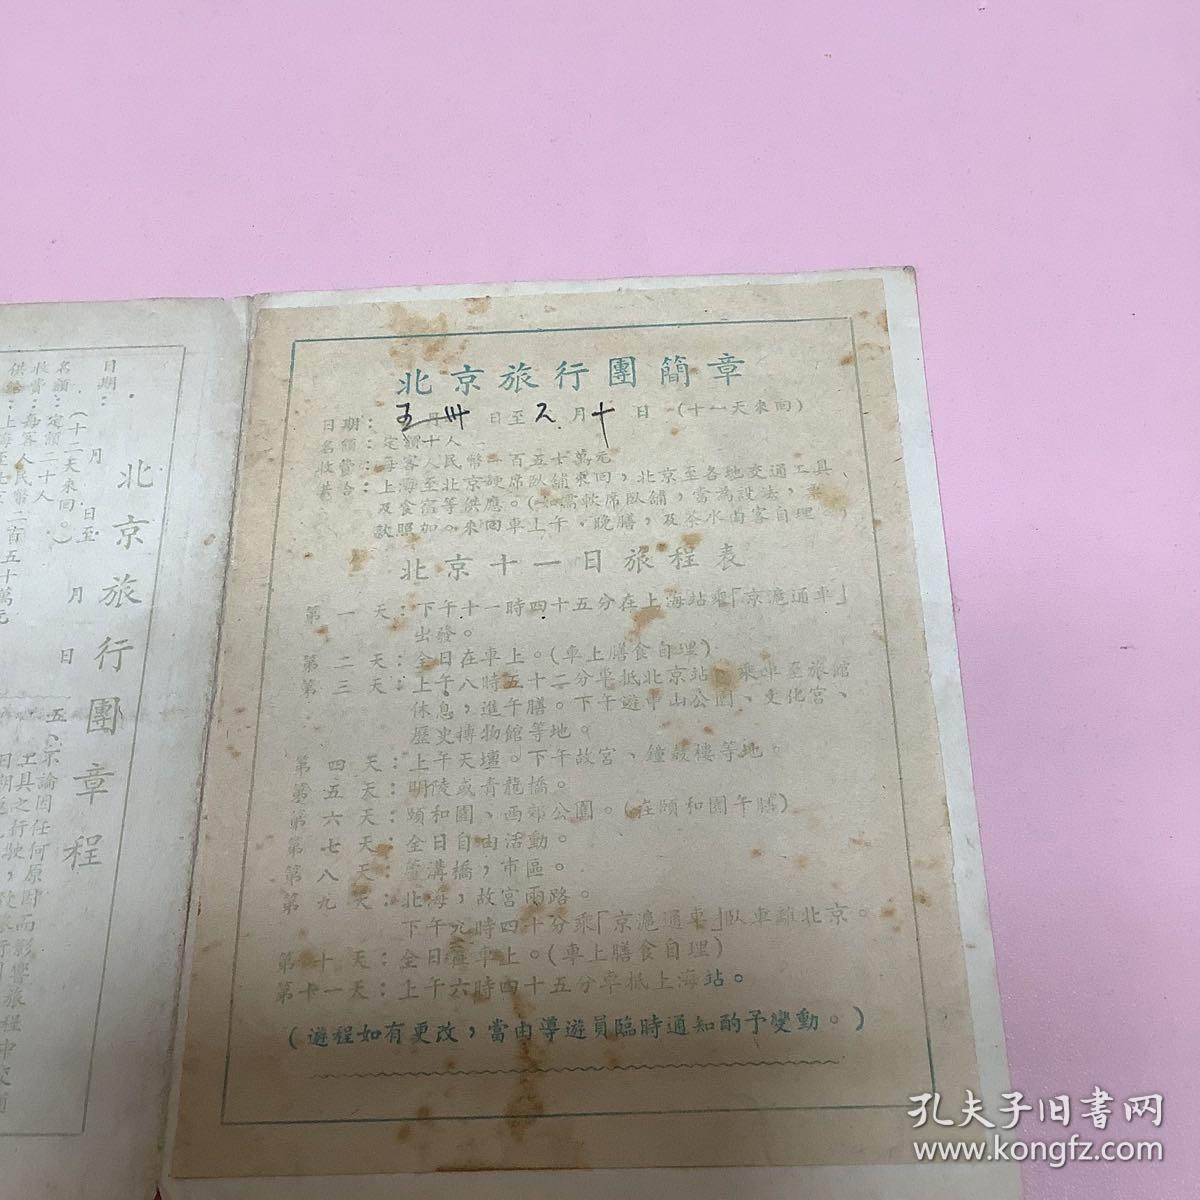 北京旅行團簡章
日期：五月卅日至六月十日（十一天來回）
名額：定額十人
收費：每客人民幣一百五十萬元
供給：上海至北京硬席臥舖來回，北京至各地交通工具
及食宿等供應。（如需軟席臥舖，當為設法，票
款照加。來回車上午、晚膳，及茶水由客自理
北京十一日旅程表
第一天：下午十一時四十五分在上海站乘「京滬通車」
出發。
第二天：全日在車上。（車上膳食自理）
第三天：上午八時五十二分車抵北京站，乘車至旅館
休息，進午膳。下午遊中山公園、文化宮、
歷史博物館等地。
第四天：上午天壇。下午故宮、鐘鼓樓等地。
第五天：明陵或青龍橋。
第六天：頤和園、西郊公園。（在頤和園午膳）
第七天：全日自由活動。
第八天：蘆溝橋，市區。
第九天：北海，故宮兩路。
下午九時四十分乘「京滬通車」臥車離北京。
第十天：全日在車上。（車上膳食自理）
第十一天：上午六時四十五分車抵上海站。
（遊程如有更改，當由導遊員臨時通知酌予變動。）
北京旅行團章程
日期：月日至月日
（十一天來回。）
名額：定額二十人
收費：每客人民幣二百五十萬元
供給：上海至
五、不論因任何原因而影響旅程中交
工具之行駛，
孔夫子旧書网
www.kongfz.com